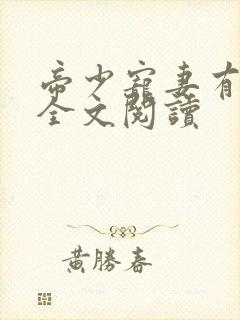 帝少寵妻有
全文閱讀
黃勝春